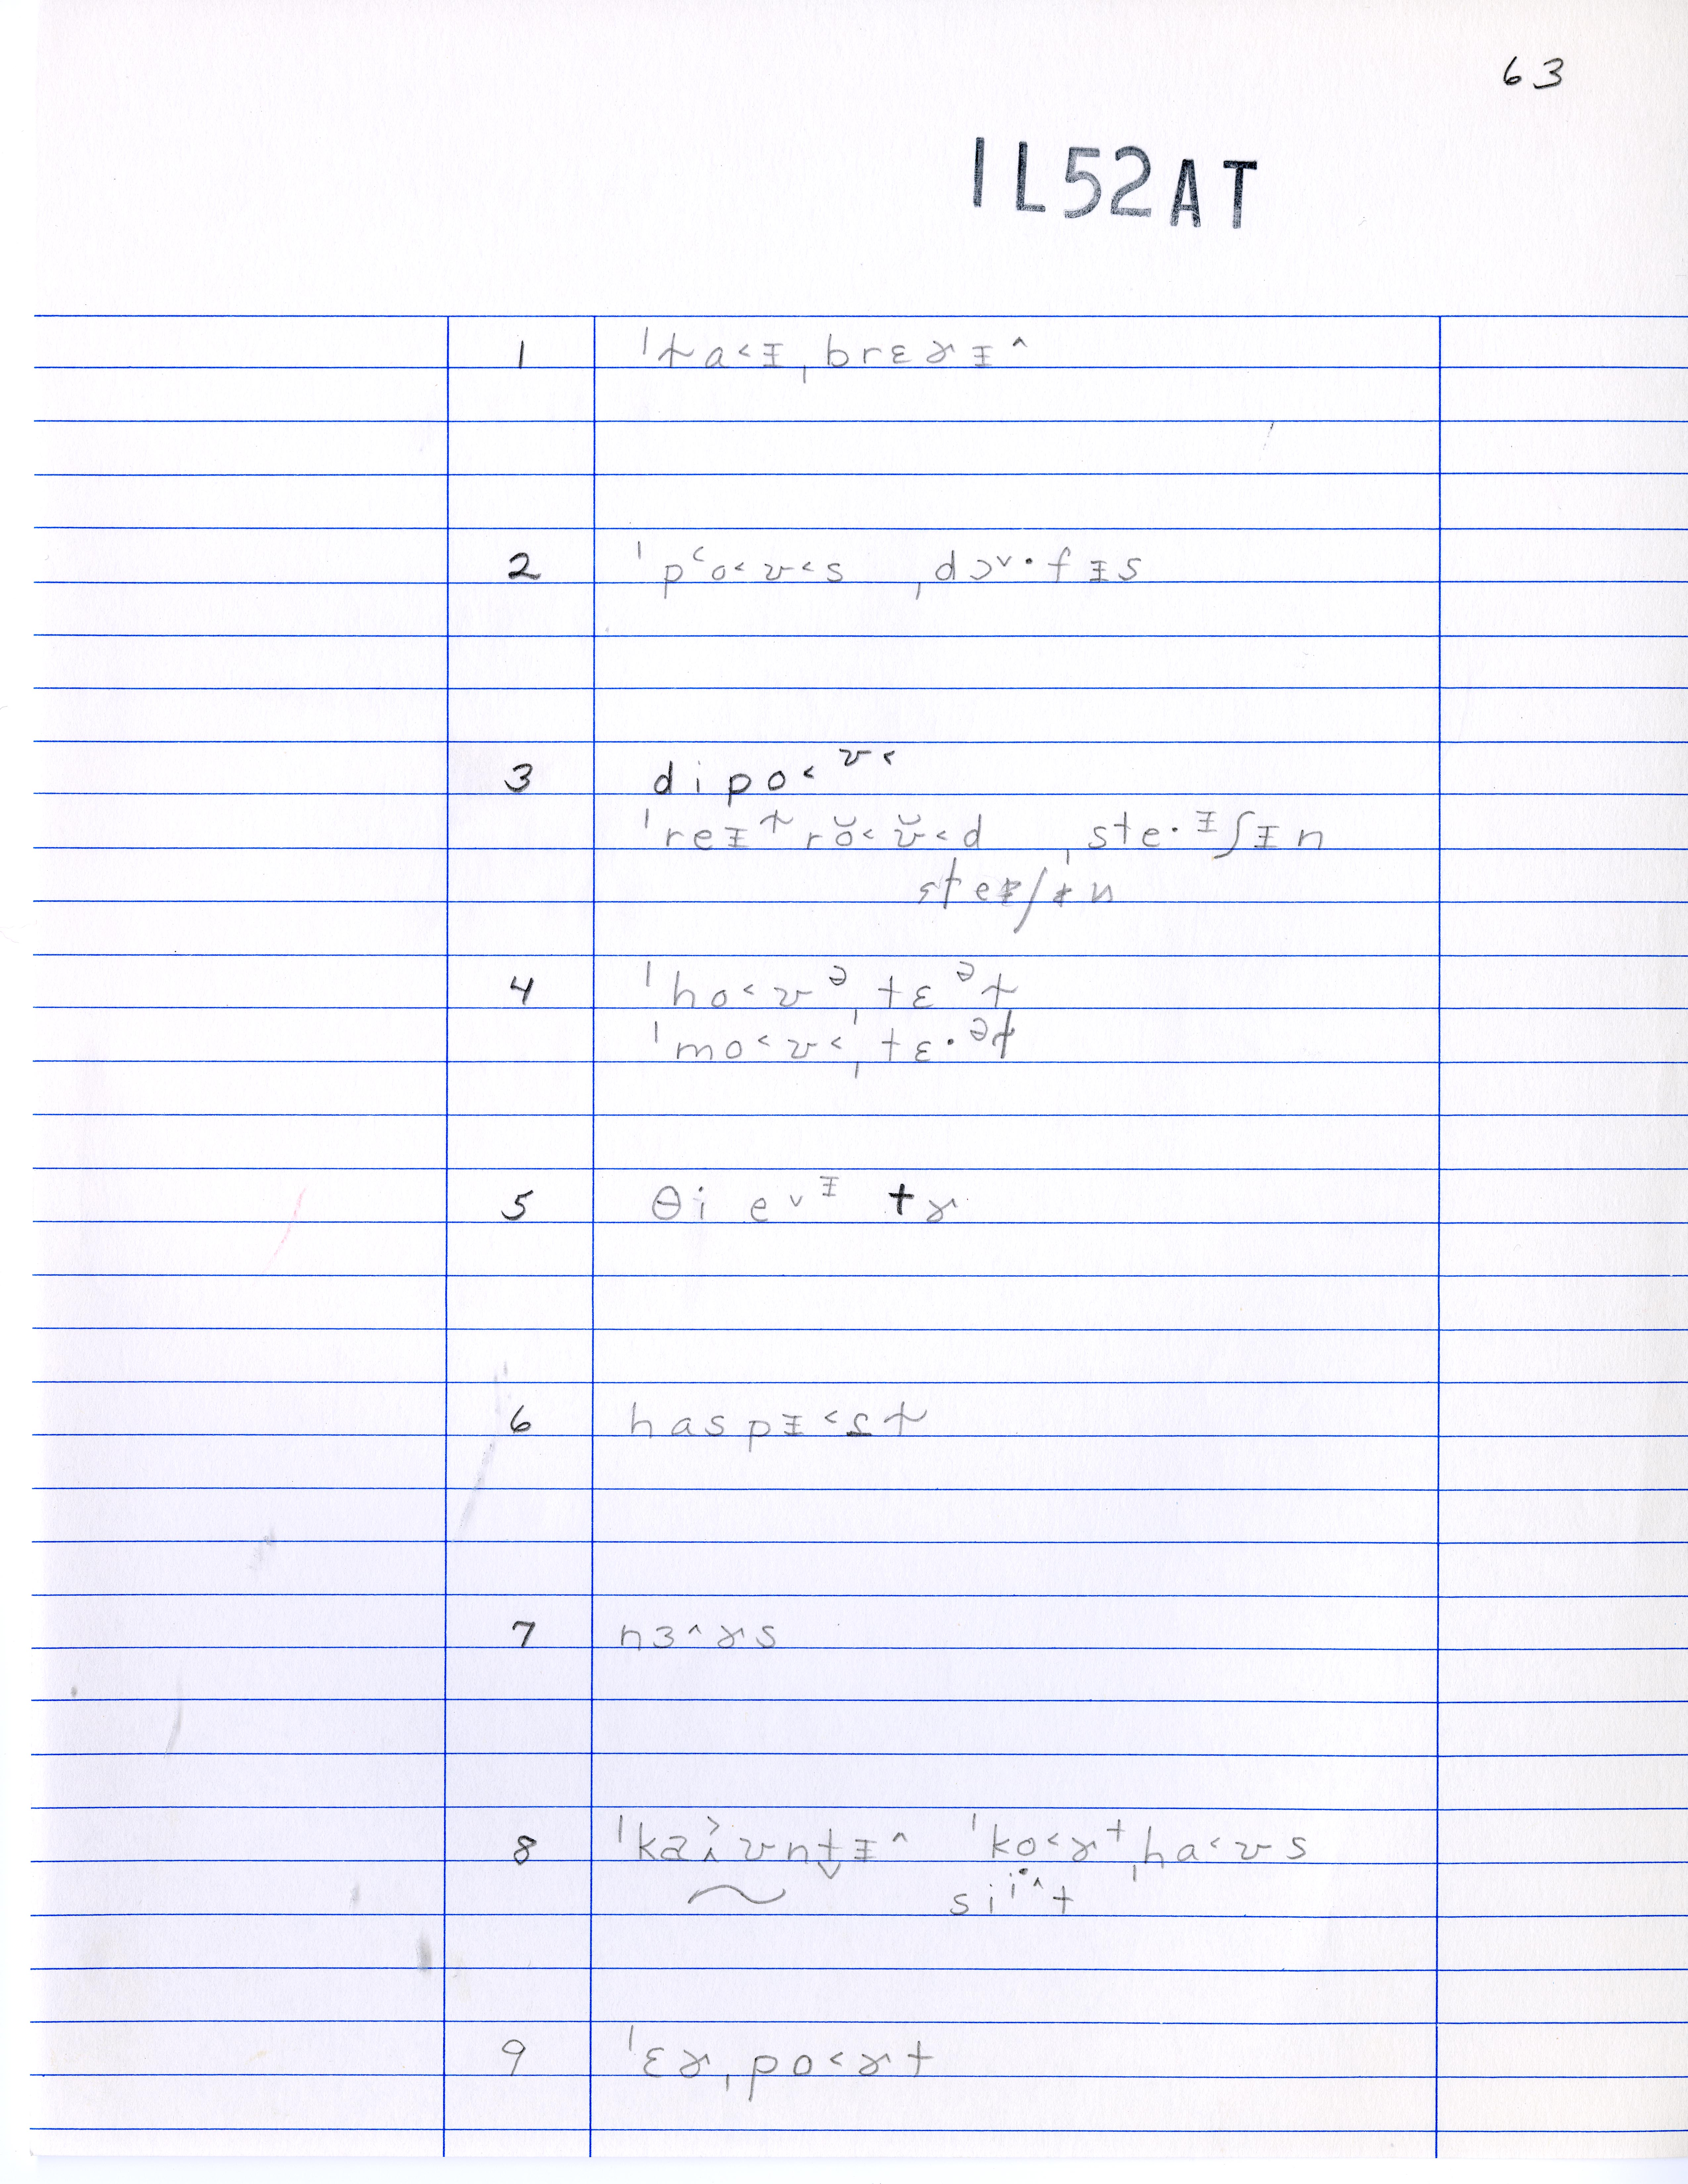 63
IL52AT
1 ˈt̬a˂ᵻˌbrɛɚᵻ˄
2 ˈpʿo˂ʊ˂s ˌdɔ˅·fᵻs
3 dipo˂ʊ˂
ˈreᵻt̬rŏ˂ʊ̆˂d ˌste·ᵻʃᵻn
steᵻʃᵻn
4 ˈho˂ʊəˌtɛət̬
ˈmo˂ʊ˂ˌtɛ·ət̬
5 θi e˅ᵻ tɚ
6 haspᵻ˂s̲t̬
7 nɜ˄ɚs
8 ˈka ʊntᵻ˄ ˈko˂ɚtˌha˂ʊs
sii˄t
9 ˈɛɚˌpo˂ɚt